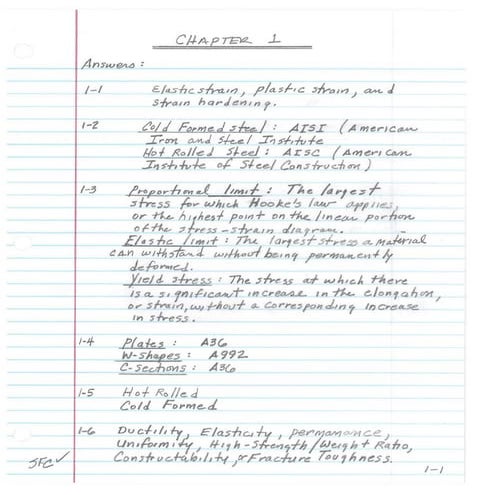 CHAPTER 1
Answers :
1-1 Elastic strain, plastic strain, and
strain hardening.
1-2 Cold Formed steel : AISI (American
Iron and Steel Institute
Hot Rolled Steel : AISC (American
Institute of Steel Construction)
1-3 Proportional limit : The largest
stress for which Hooke's law applies,
or the highest point on the linear portion
of the stress-strain diagram.
Elastic limit : The largest stress a material
can withstand without being permanently
deformed.
Yield stress : The stress at which there
is a significant increase in the elongation,
or strain, without a corresponding increase
in stress.
1-4 Plates : A36
W-shapes : A992
C-sections : A36
1-5 Hot Rolled
Cold Formed
1-6 Ductility, Elasticity, permanance,
Uniformity, High-Strength/Weight Ratio,
JFC ✓ Constructability, or Fracture Toughness.
1-1